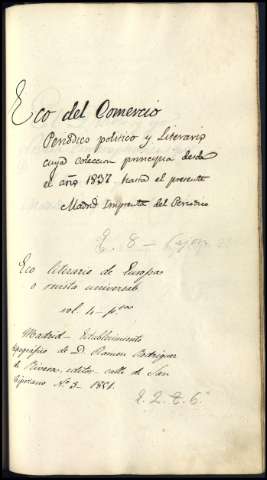 Eco del Comercio
Periodico politico y Literario
cuya coleccion principia desde
el año 1837 hasta el presente
Madrid Imprenta del Periodico
E. 8 –
Eco literario de Europa
o revista universal
vol. 4
Madrid – Establecimiento
tipografico de D. Ramon Rodriguez
de Rivera, editor calle de San
Cipriano Nº 3 – 1851.
E. 2. t. 6